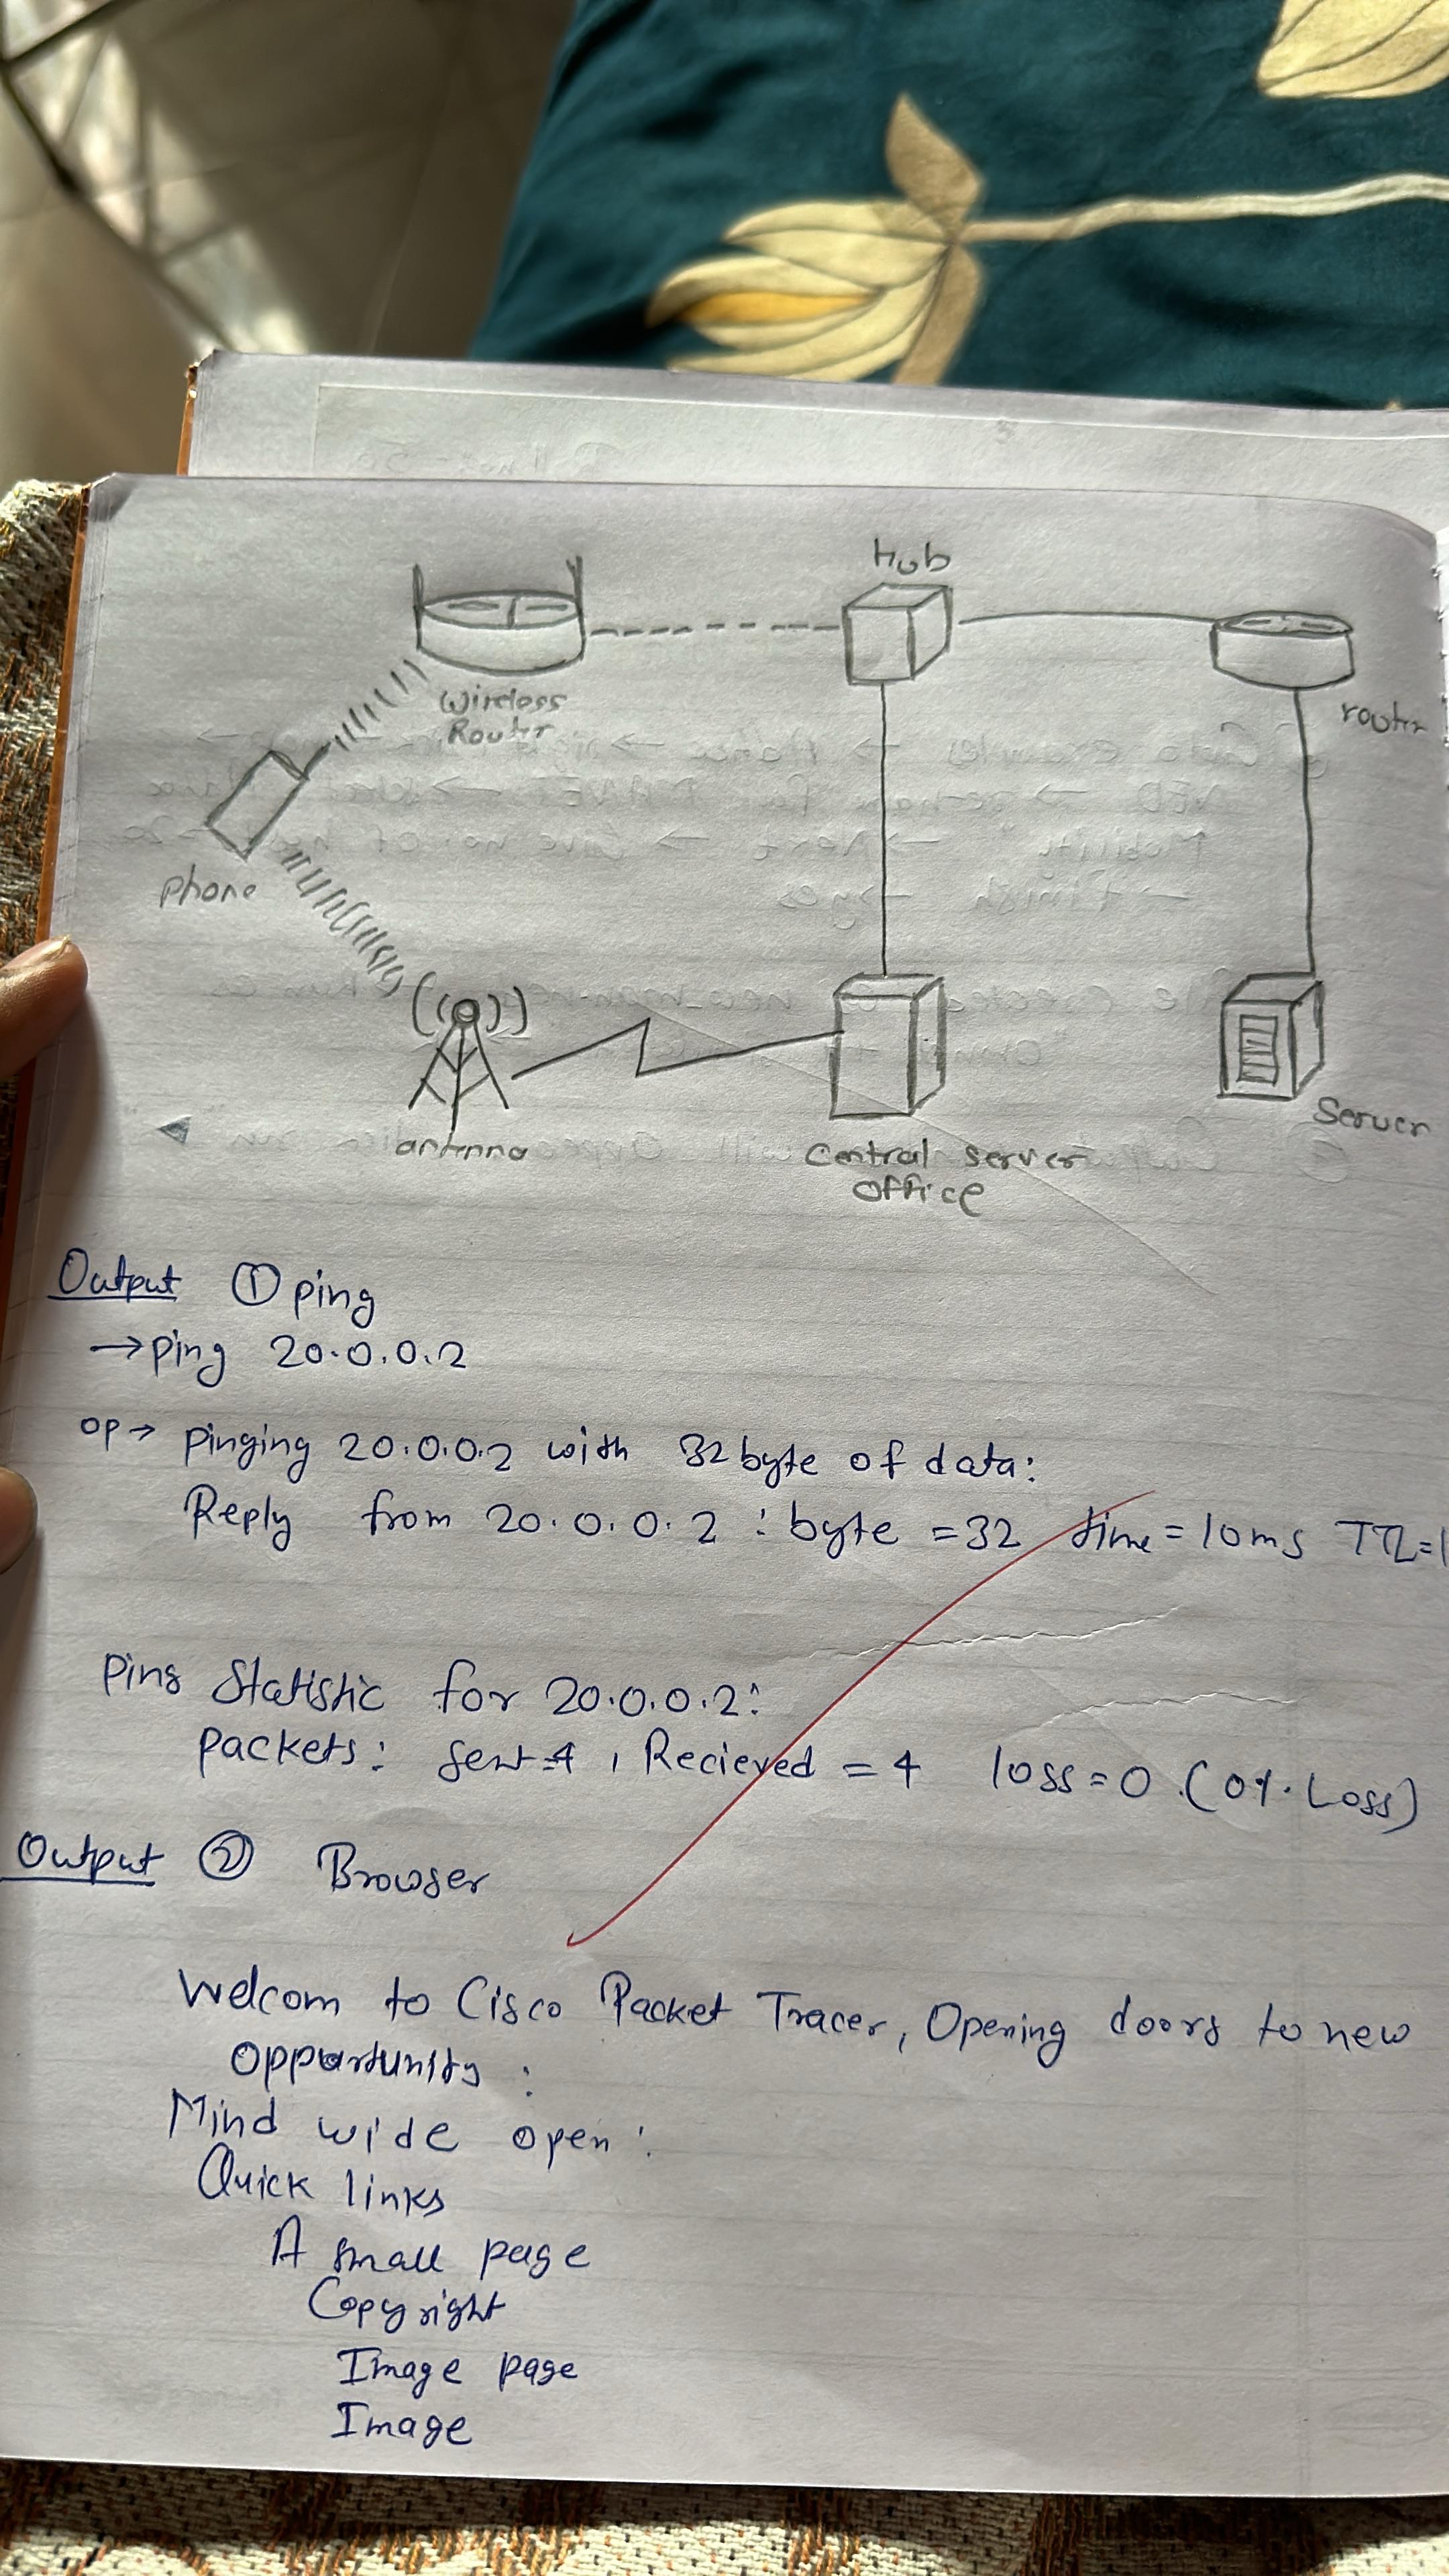 Hub
Wireless
Router
router
phone
antenna
Central server
office
Server
Output ① ping
→ ping 20.0.0.2
op → pinging 20.0.0.2 with 32 byte of data:
Reply from 20.0.0.2 : byte = 32 time = 10ms TTL=1
Ping Statistic for 20.0.0.2:
packets: sent=4, Recieved = 4 loss=0 (0% Loss)
Output ② Browser
Welcom to Cisco Packet Tracer, Opening doors to new
opportunity :
Mind wide open :
Quick links
A small page
Copyright
Image page
Image